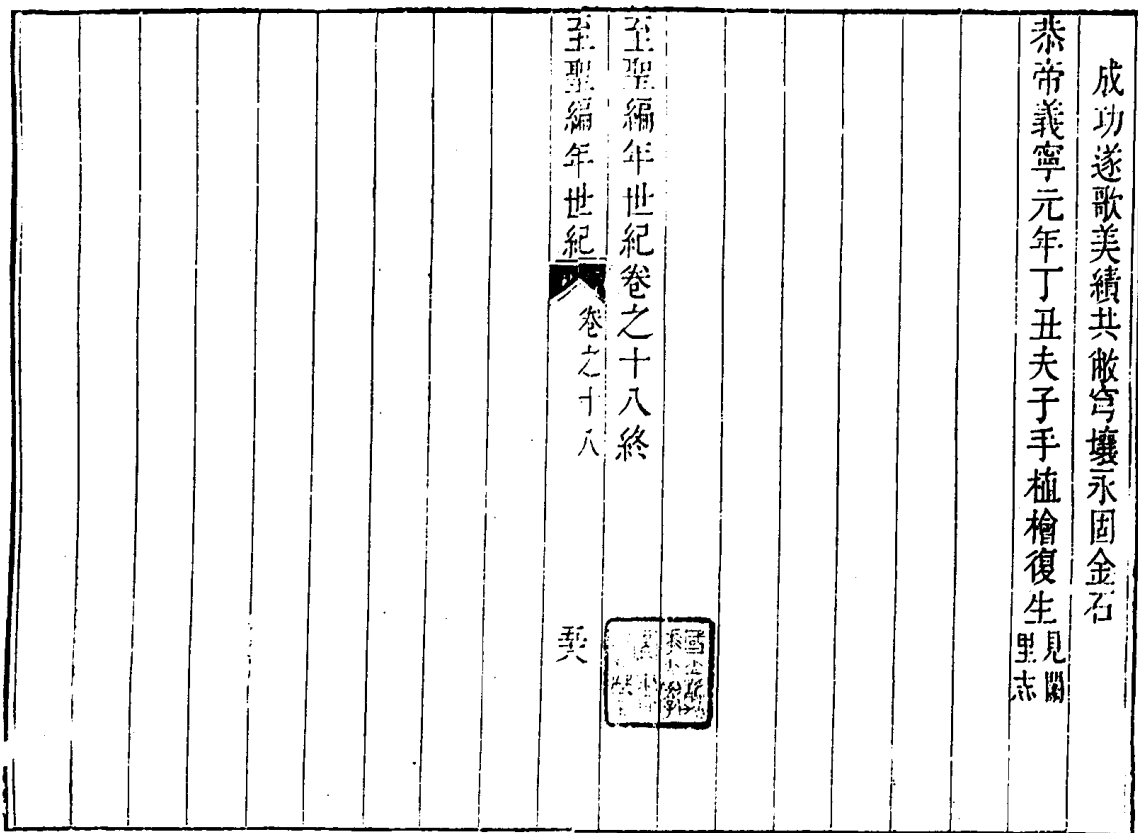 成功遂歌美績共敝穹壤永固金石
恭帝義寧元年丁丑夫子手植檜復生見闕里志
至聖編年世紀卷之十八終
至聖編年世紀
卷之十八